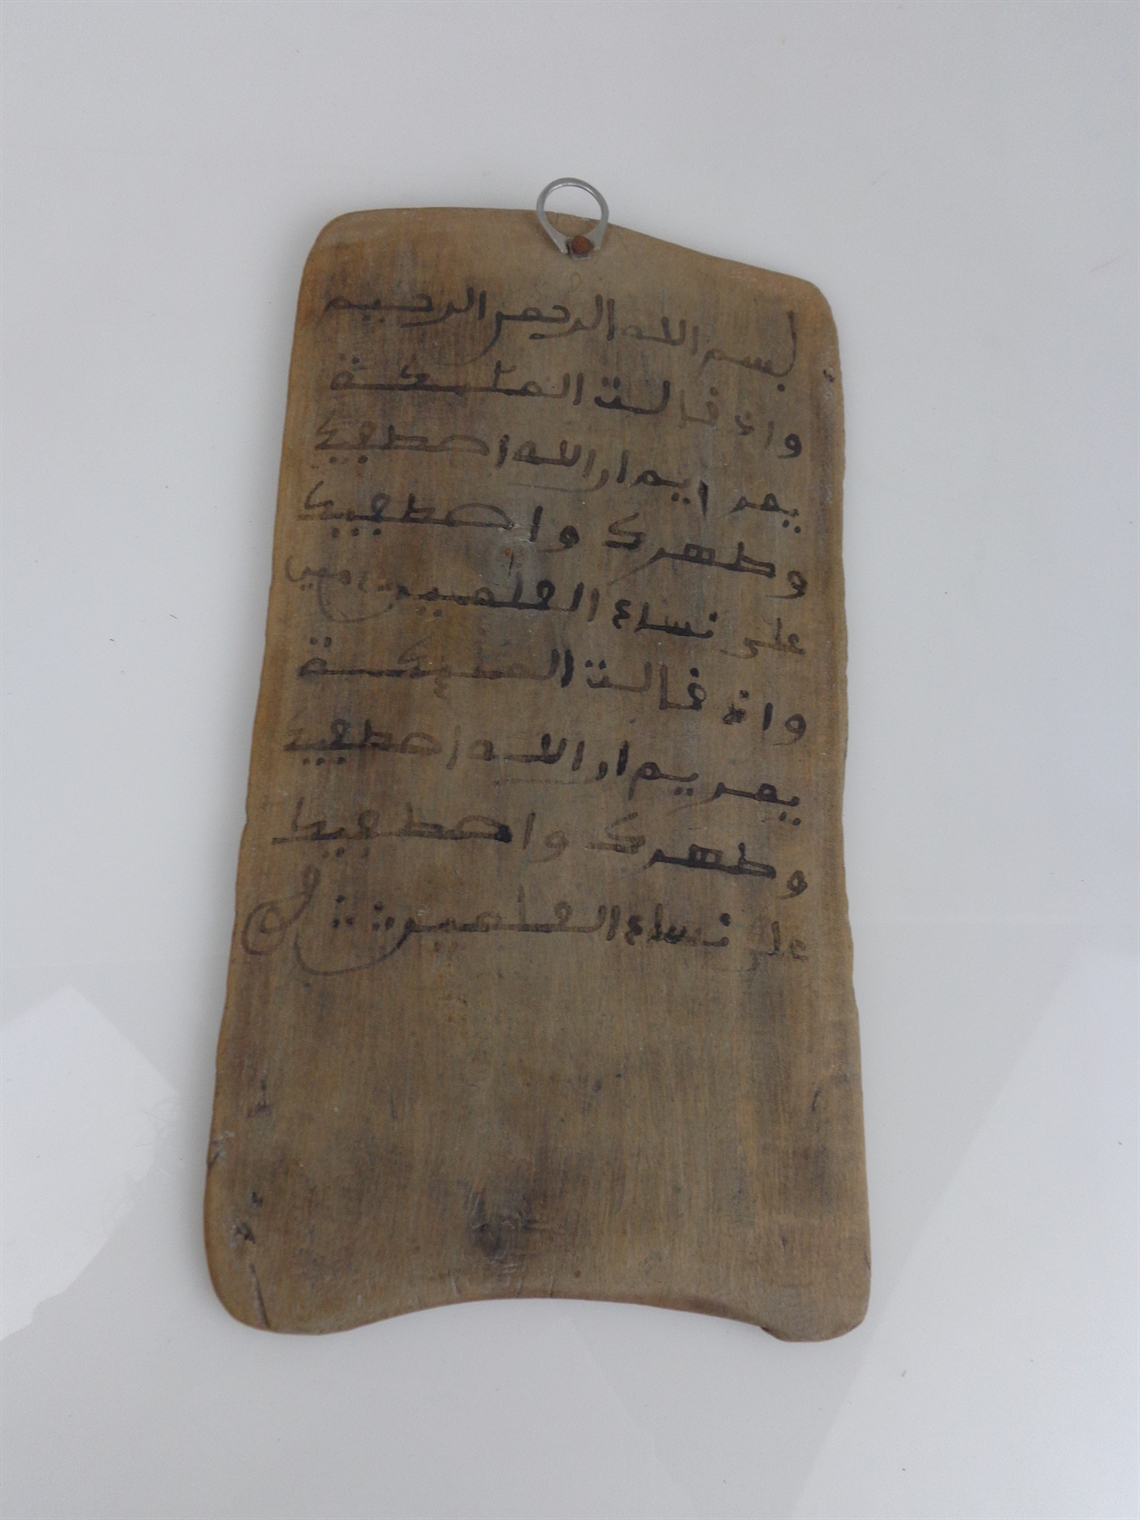 بسم الله الرحمن الرحيم
واذ قالت الملـكة
يمر ايم ان الله اصطفيك
وطهرك واصطفيك
على نساء العلمين
واذ قالت الملـيكة
يمريم ان الله اصطفيك
وطهرك واصطفيك
على نساء العلمين